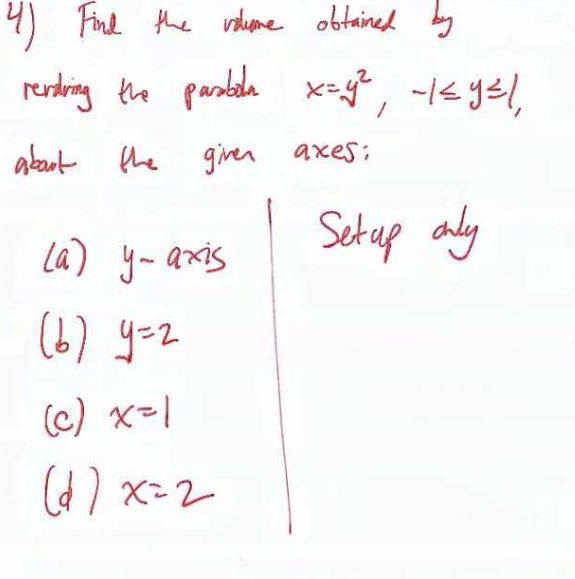 4) Find the volume obtained by
revolving the parabola x=y², -1≤y≤1,
about the given axes:
(a) y-axis
(b) y=2
(c) x=1
(d) x=2
Setup only